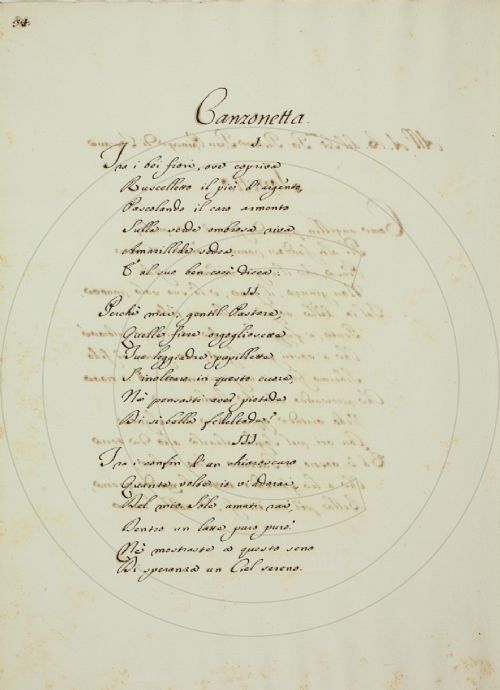 34.
Canzonetta.
I.
Tra i bei fiori, ove copriva
Ruscelletto il piè d'argento,
Pascolando il caro armento
Sulla verde ombrosa riva
Amarillide sedea,
E al suo ben così dicea:
II.
Perchè mai, gentil Pastore,
Quelle fiere orgogliosette
Due leggiadre pupillette
T'inoltraro in questo cuore,
Nè pensasti aver pietade
Di sì bella fedeltade?
III.
Tra i confin d'un chiaroscuro
Quante volte io v'adorai
Del mio Sole amati rai,
Dentro un latte puro puro!
Nè mostraste a questo seno
Di speranza un Ciel sereno.